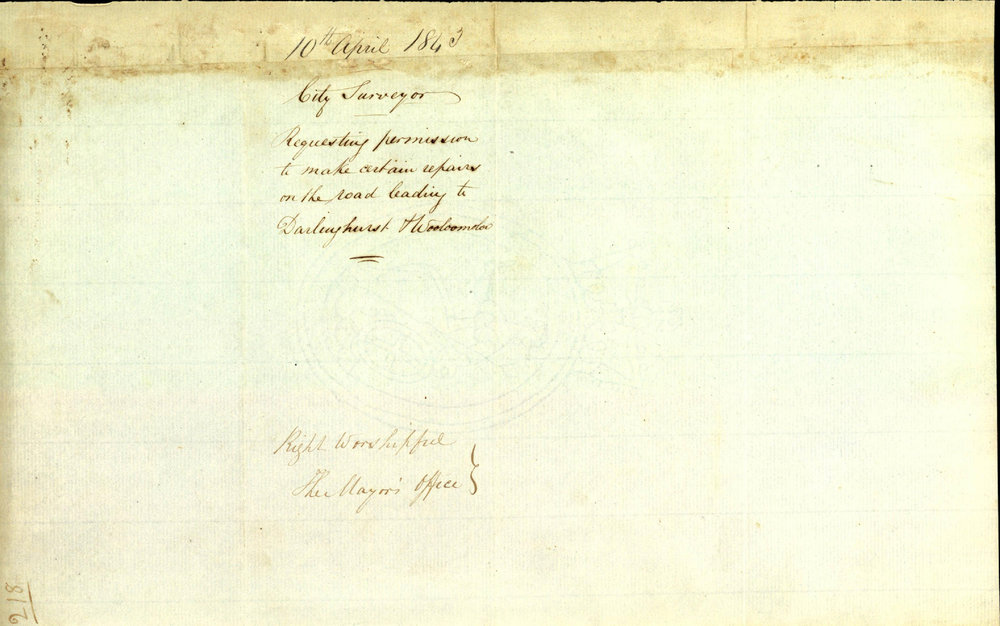 10th April 1843
City Surveyor
Requesting permission
to make certain repairs
on the road leading to
Darlinghurst & Woolcomoloo
Right Worshipful
The Mayor's Office
218